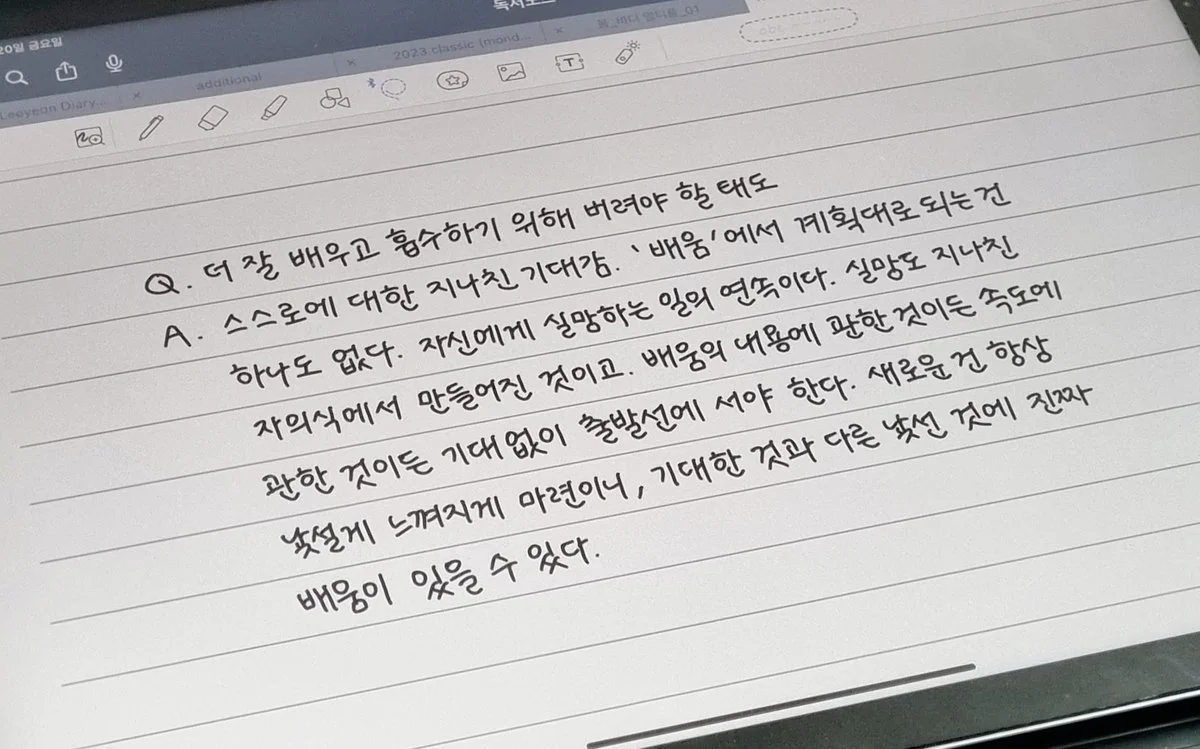 20일 금요일
Leeyeon Diary...
additional
2023 classic (mond...
Q. 더 잘 배우고 흡수하기 위해 버려야 할 태도
A. 스스로에 대한 지나친 기대감. '배움'에서 계획대로 되는 건
하나도 없다. 자신에게 실망하는 일의 연속이다. 실망도 지나친
자의식에서 만들어진 것이고. 배움의 내용에 관한 것이든 속도에
관한 것이든 기대없이 출발선에 서야 한다. 새로운 건 항상
낯설게 느껴지게 마련이니, 기대한 것과 다른 낯선 것에 진짜
배움이 있을 수 있다.